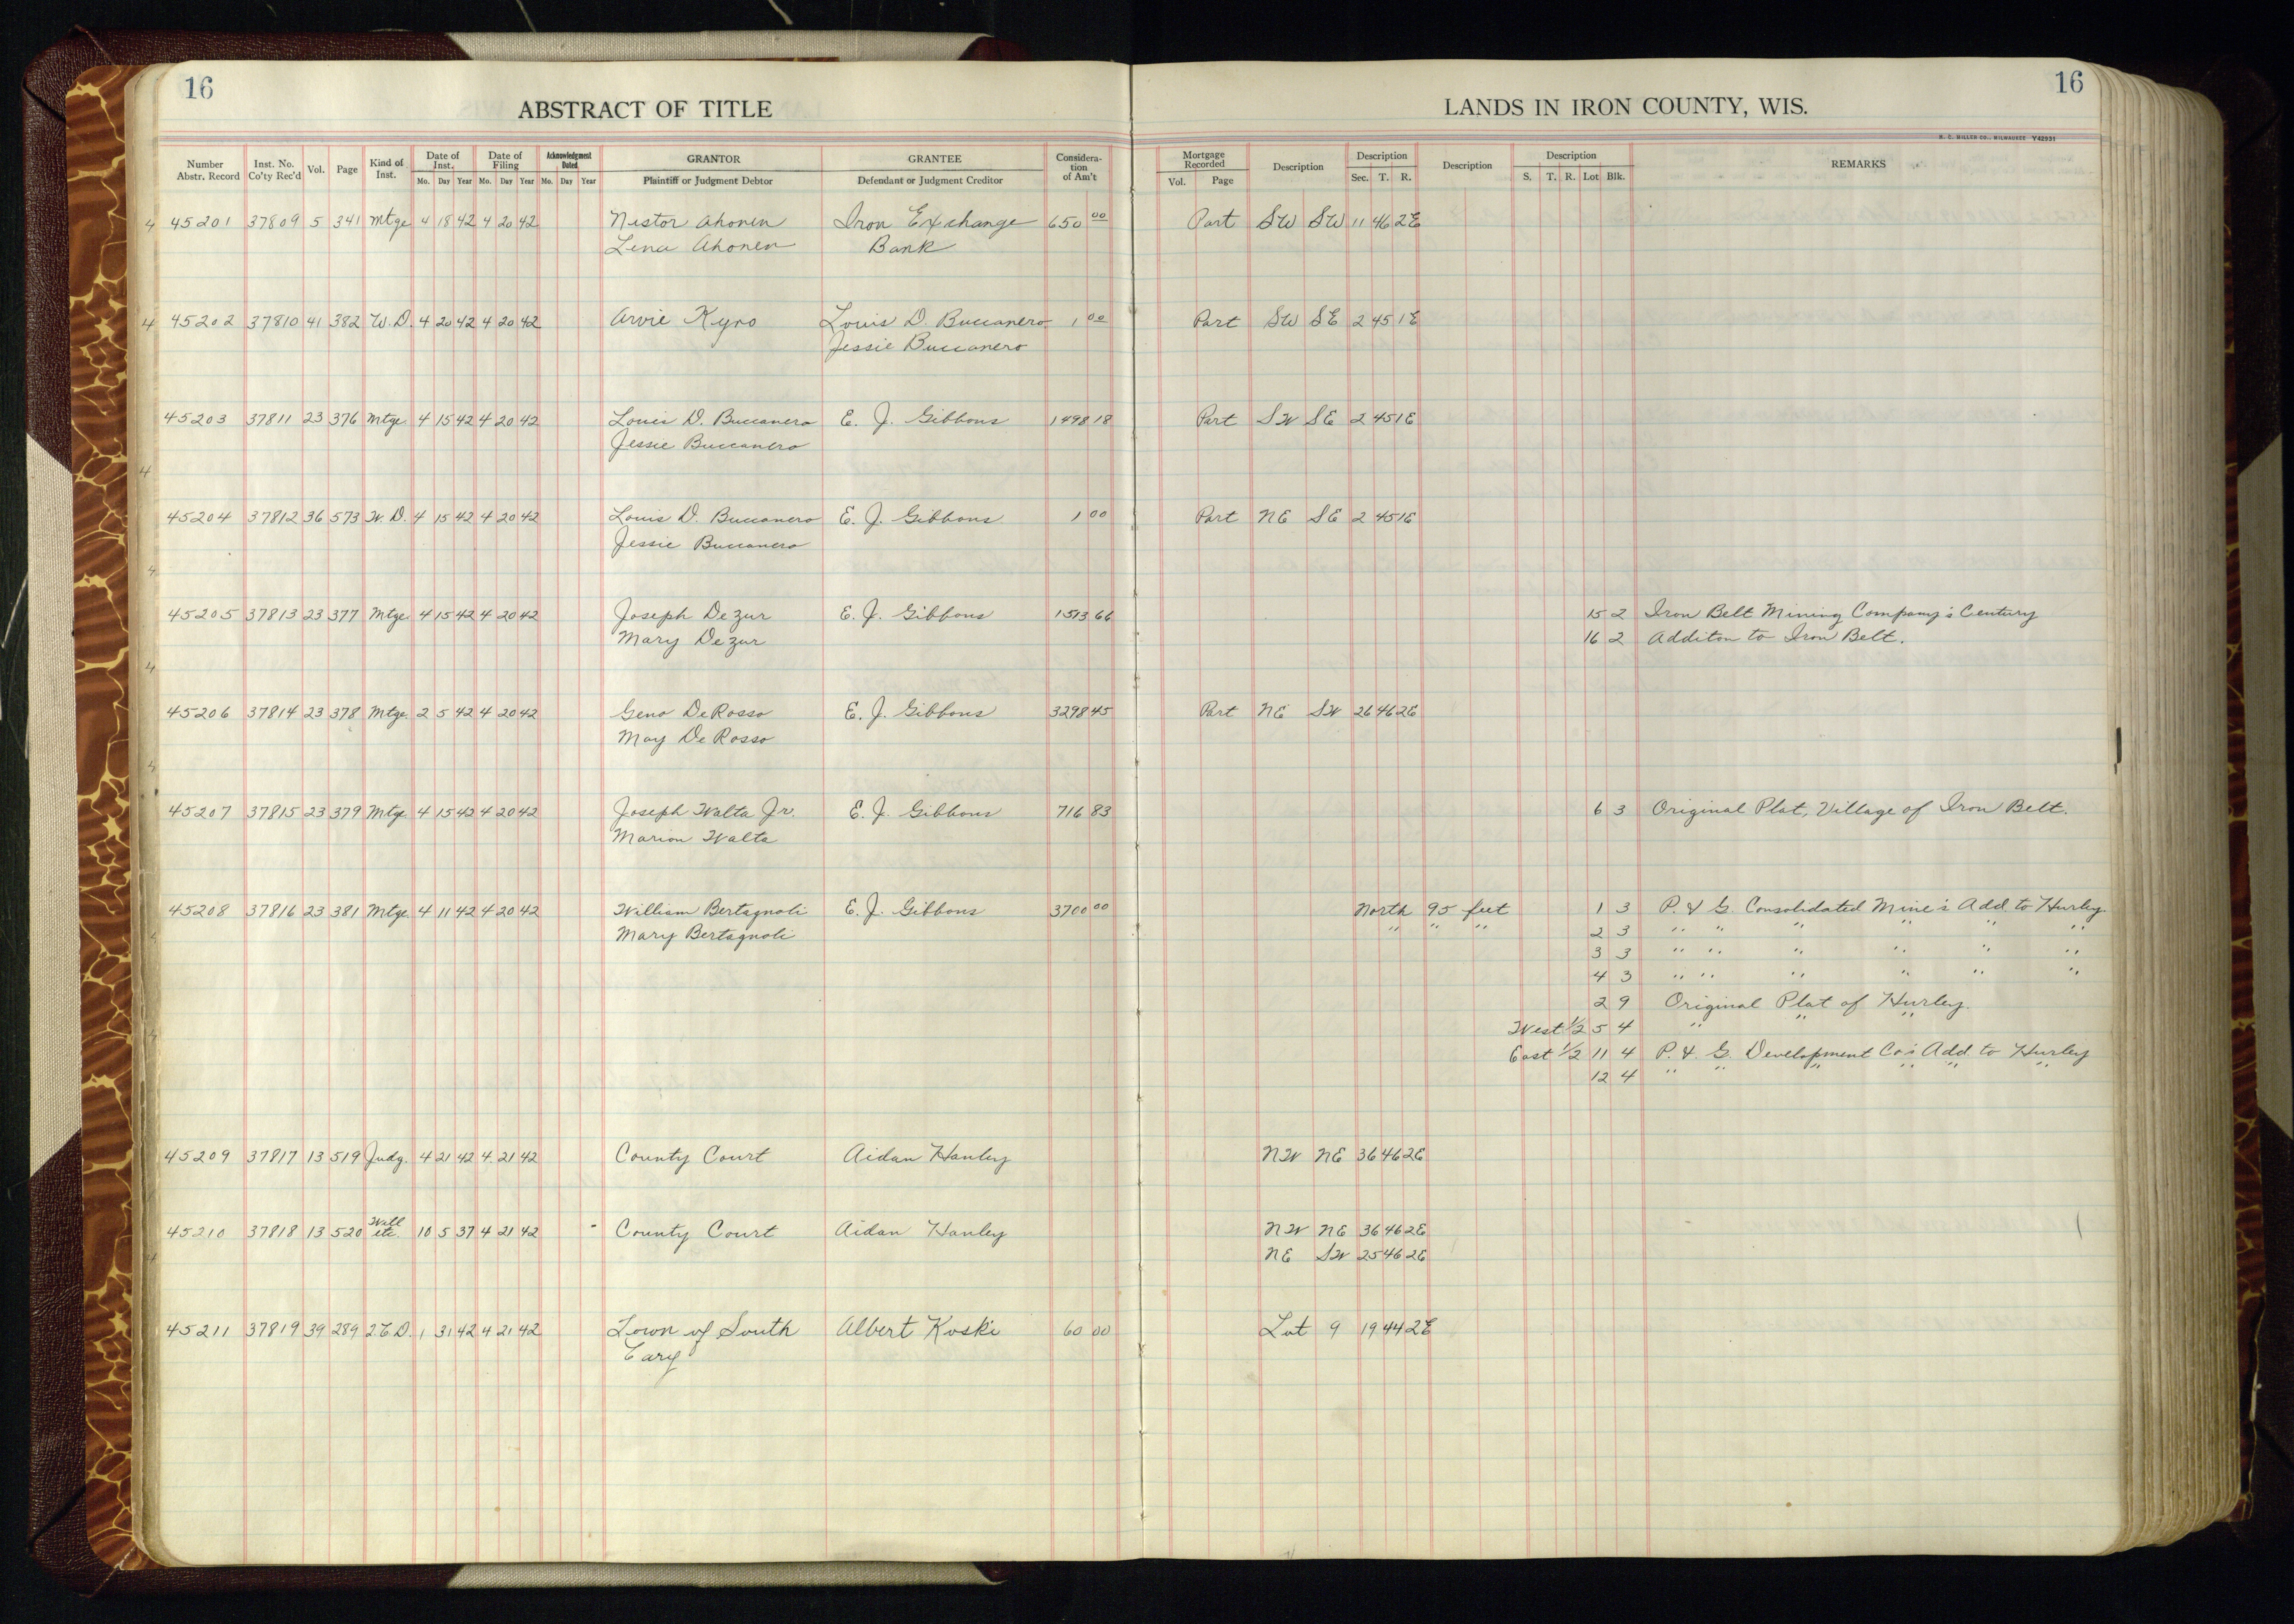 16
16
ABSTRACT OF TITLE
LANDS IN IRON COUNTY, WIS.
H. C. MILLER CO., MILWAUKEE Y42931
Number Abstr. Record Inst. No. Co'ty Rec'd Vol. Page Kind of Inst. Date of Inst. Mo. Day Year Date of Filing Mo. Day Year Acknowledgment Dated Mo. Day Year GRANTOR Plaintiff or Judgment Debtor GRANTEE Defendant or Judgment Creditor Consideration of Am't Mortgage Recorded Vol. Page Description Description Sec. T. R. Description Description S. T. R. Lot Blk. REMARKS
4 45201 37809 5 341 Mtge 4 18 42 4 20 42 Nestor Ahonen Iron Exchange 650 00 Part SW SW 11 46 2E
Lena Ahonen Bank
4 45202 37810 41 382 W.D. 4 20 42 4 20 42 Arvie Kyro Louis D. Buccanero 1 00 Part SW SE 2 45 1E
Jessie Buccanero
45203 37811 23 376 Mtge. 4 15 42 4 20 42 Louis D. Buccanero E. J. Gibbons 1498 18 Part SW SE 2 45 1E
Jessie Buccanero
4
45204 37812 36 573 W. D. 4 15 42 4 20 42 Louis D. Buccanero E. J. Gibbons 1 00 Part NE SE 2 45 1E
Jessie Buccanero
4
45205 37813 23 377 Mtge. 4 15 42 4 20 42 Joseph Dezur E. J. Gibbons 1513 66 15 2 Iron Belt Mining Company's Century
Mary Dezur 16 2 Additon to Iron Belt.
4
45206 37814 23 378 Mtge. 2 5 42 4 20 42 Geno DeRosso E. J. Gibbons 3298 45 Part NE SW 26 46 2E
May DeRosso
4
45207 37815 23 379 Mtge. 4 15 42 4 20 42 Joseph Walta Jr. E. J. Gibbons 716 83 6 3 Original Plat, Village of Iron Belt.
Marion Walta
45208 37816 23 381 Mtge. 4 11 42 4 20 42 William Bertagnoli E. J. Gibbons 3700 00 North 95 feet 1 3 P. & G. Consolidated Mine's Add. to Hurley.
4 Mary Bertagnoli " " " 2 3 " " " " " "
3 3 " " " " " "
4 3 " " " " " "
2 9 Original Plat of Hurley.
4 West 1/2 5 4 " " "
East 1/2 11 4 P. & G. Development Co's Add. to Hurley
12 4 " " " " " "
45209 37817 13 519 Judg. 4 21 42 4 21 42 County Court Aidan Hanley NW NE 36 46 2E
45210 37818 13 520 Will etc. 10 5 37 4 21 42 County Court Aidan Hanley NW NE 36 46 2E
4 NE SW 25 46 2E
45211 37819 39 289 2.C.D. 1 31 42 4 21 42 Town of South Albert Koski 60 00 Lot 9 19 44 2E
Cary